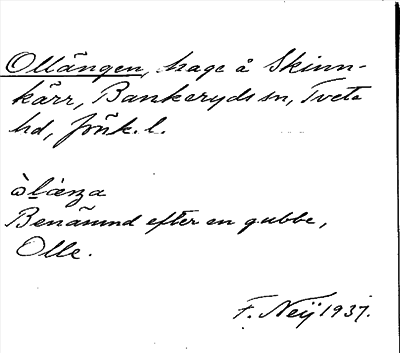 Ollängen, hage å Skinn-
kärr, Bankeryds sn, Tveta
hd, Jönk. l.
òlæŋa
Benämnd efter en gubbe,
Olle.
F. Neij 1937.